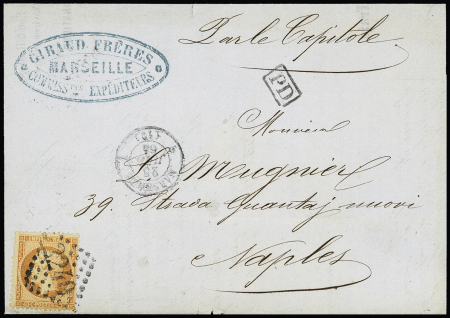 GIRAUD FRÈRES
MARSEILLE
COMMISSres EXPÉDITEURS
Par le Capitole
PD
Monsieur
S. Mugnier
39. Strada Guantaj nuovi
Naples